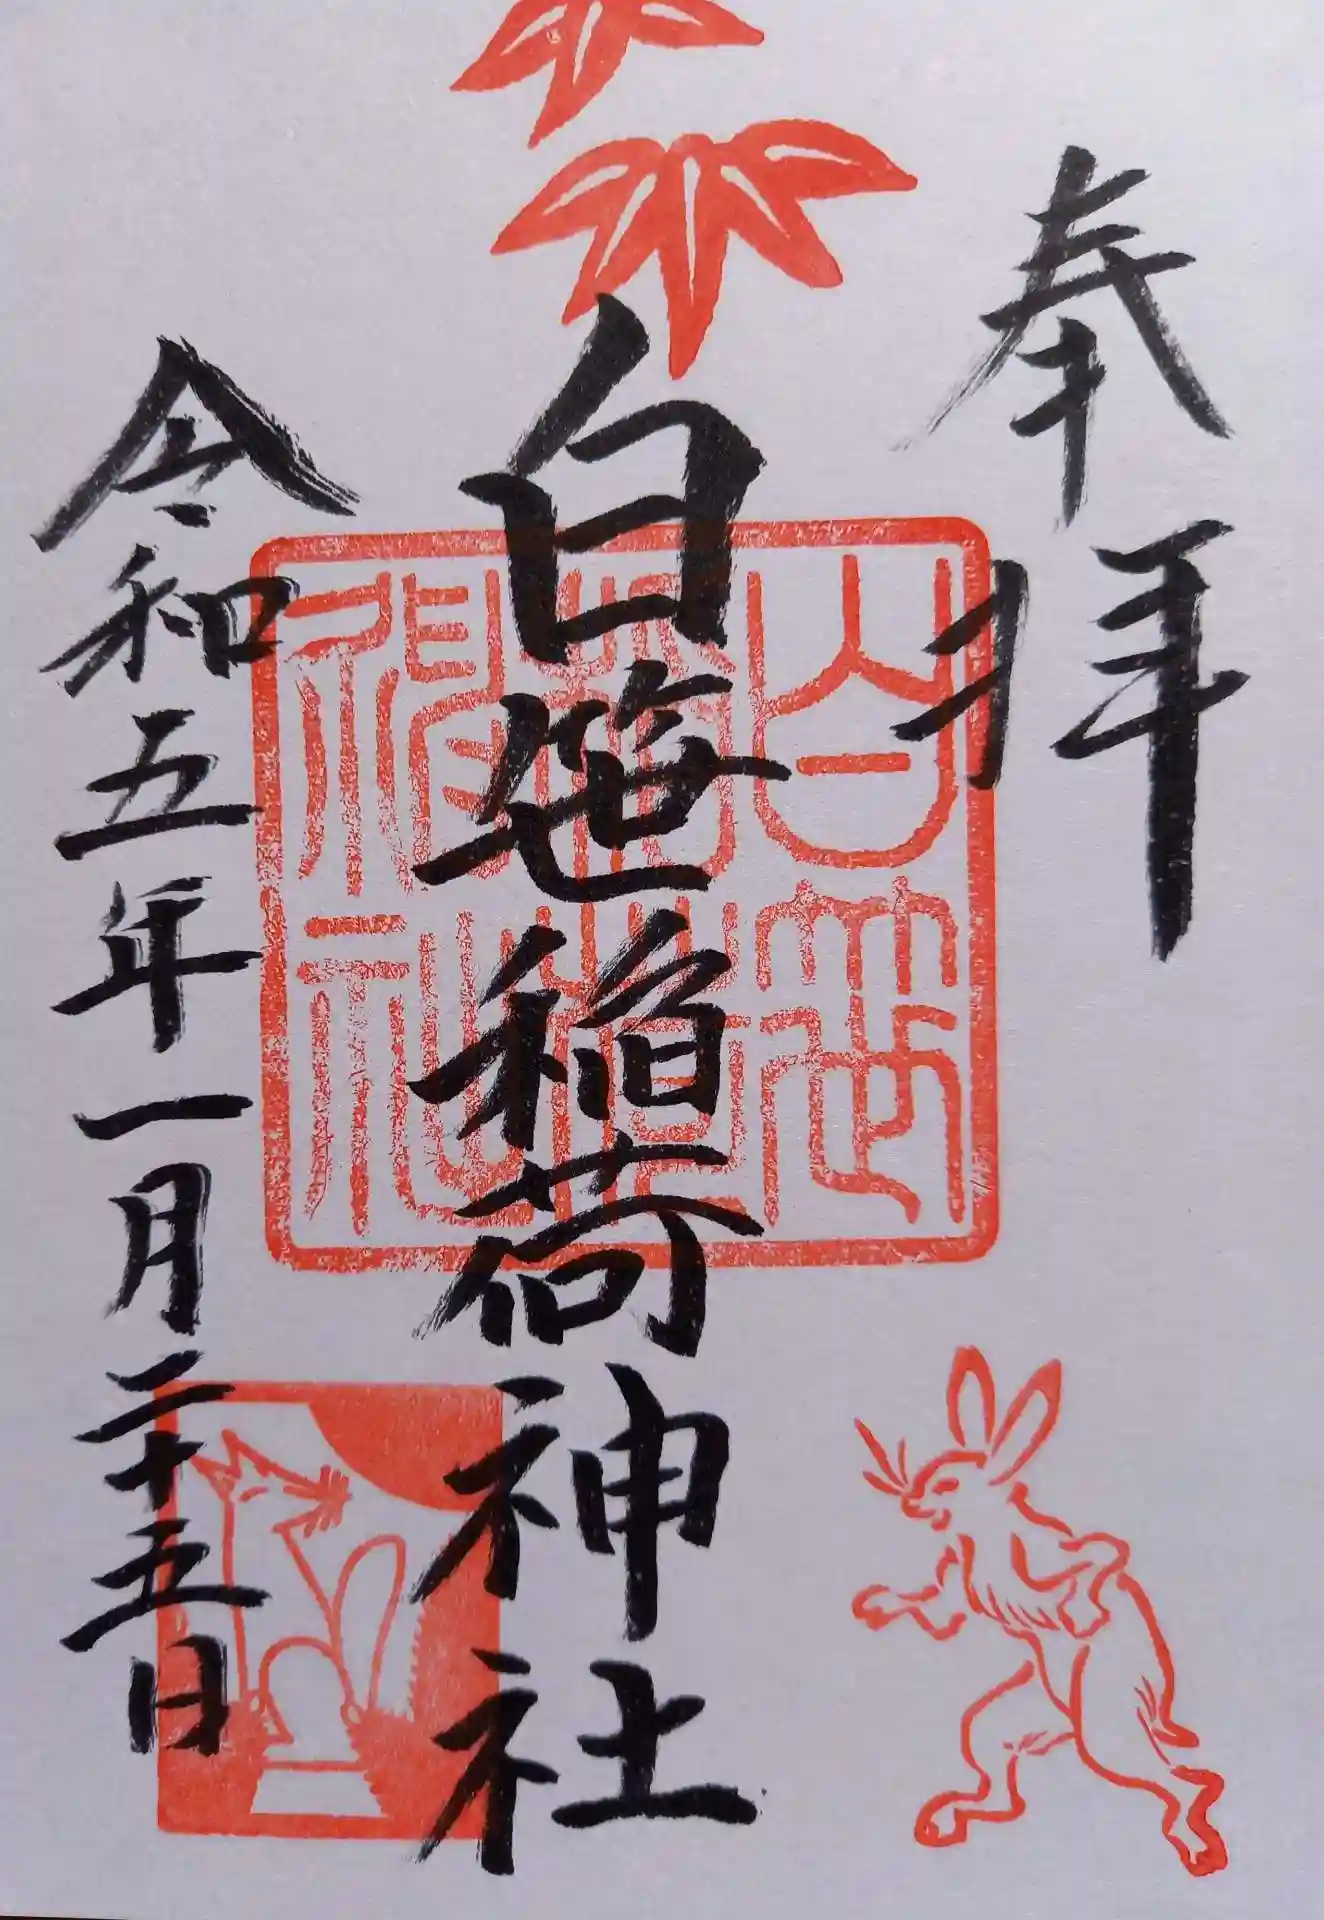 奉拝
白笹稲荷神社
令和五年一月二十五日
白笹稲荷神社